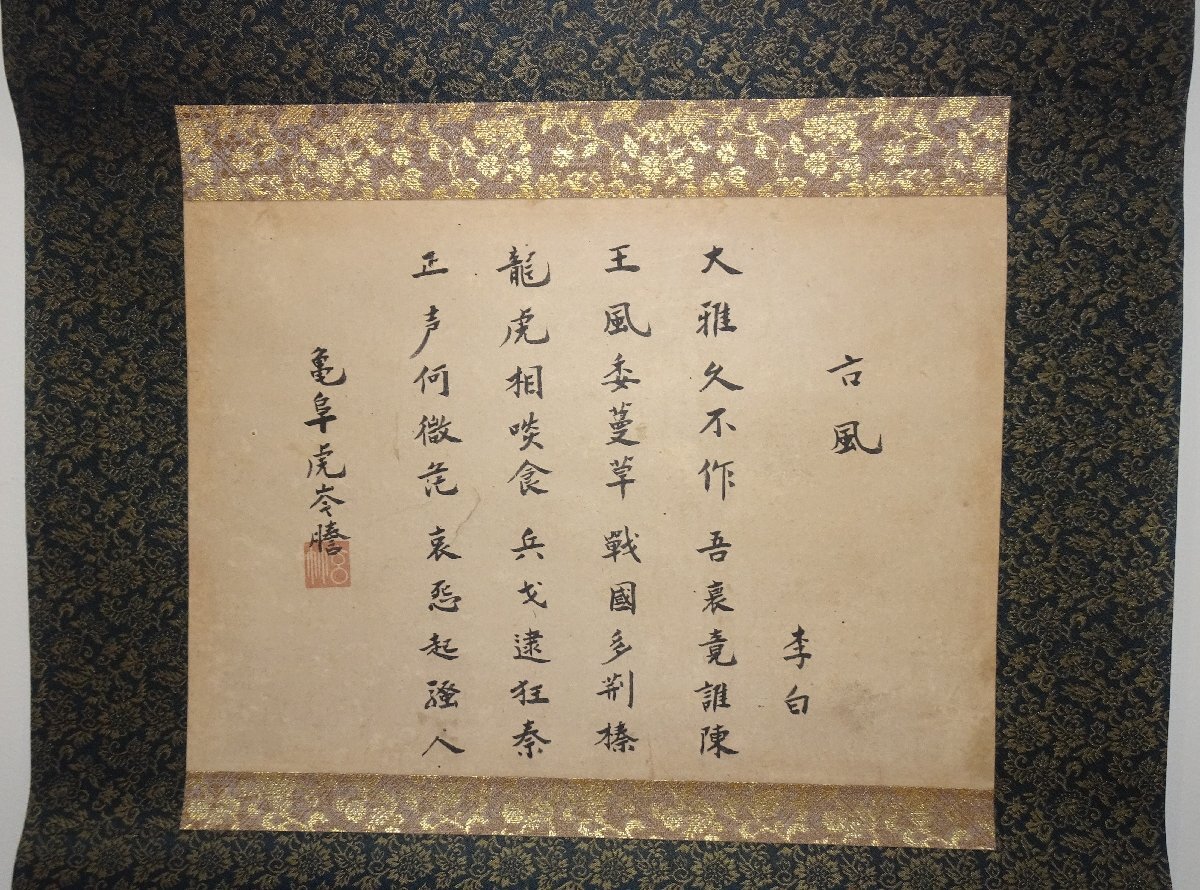 古風
李白
大雅久不作 吾衰竟誰陳
王風委蔓草 戰國多荆榛
龍虎相啖食 兵戈逮狂秦
正声何微茫 哀怨起騷人
亀阜虎岑謄